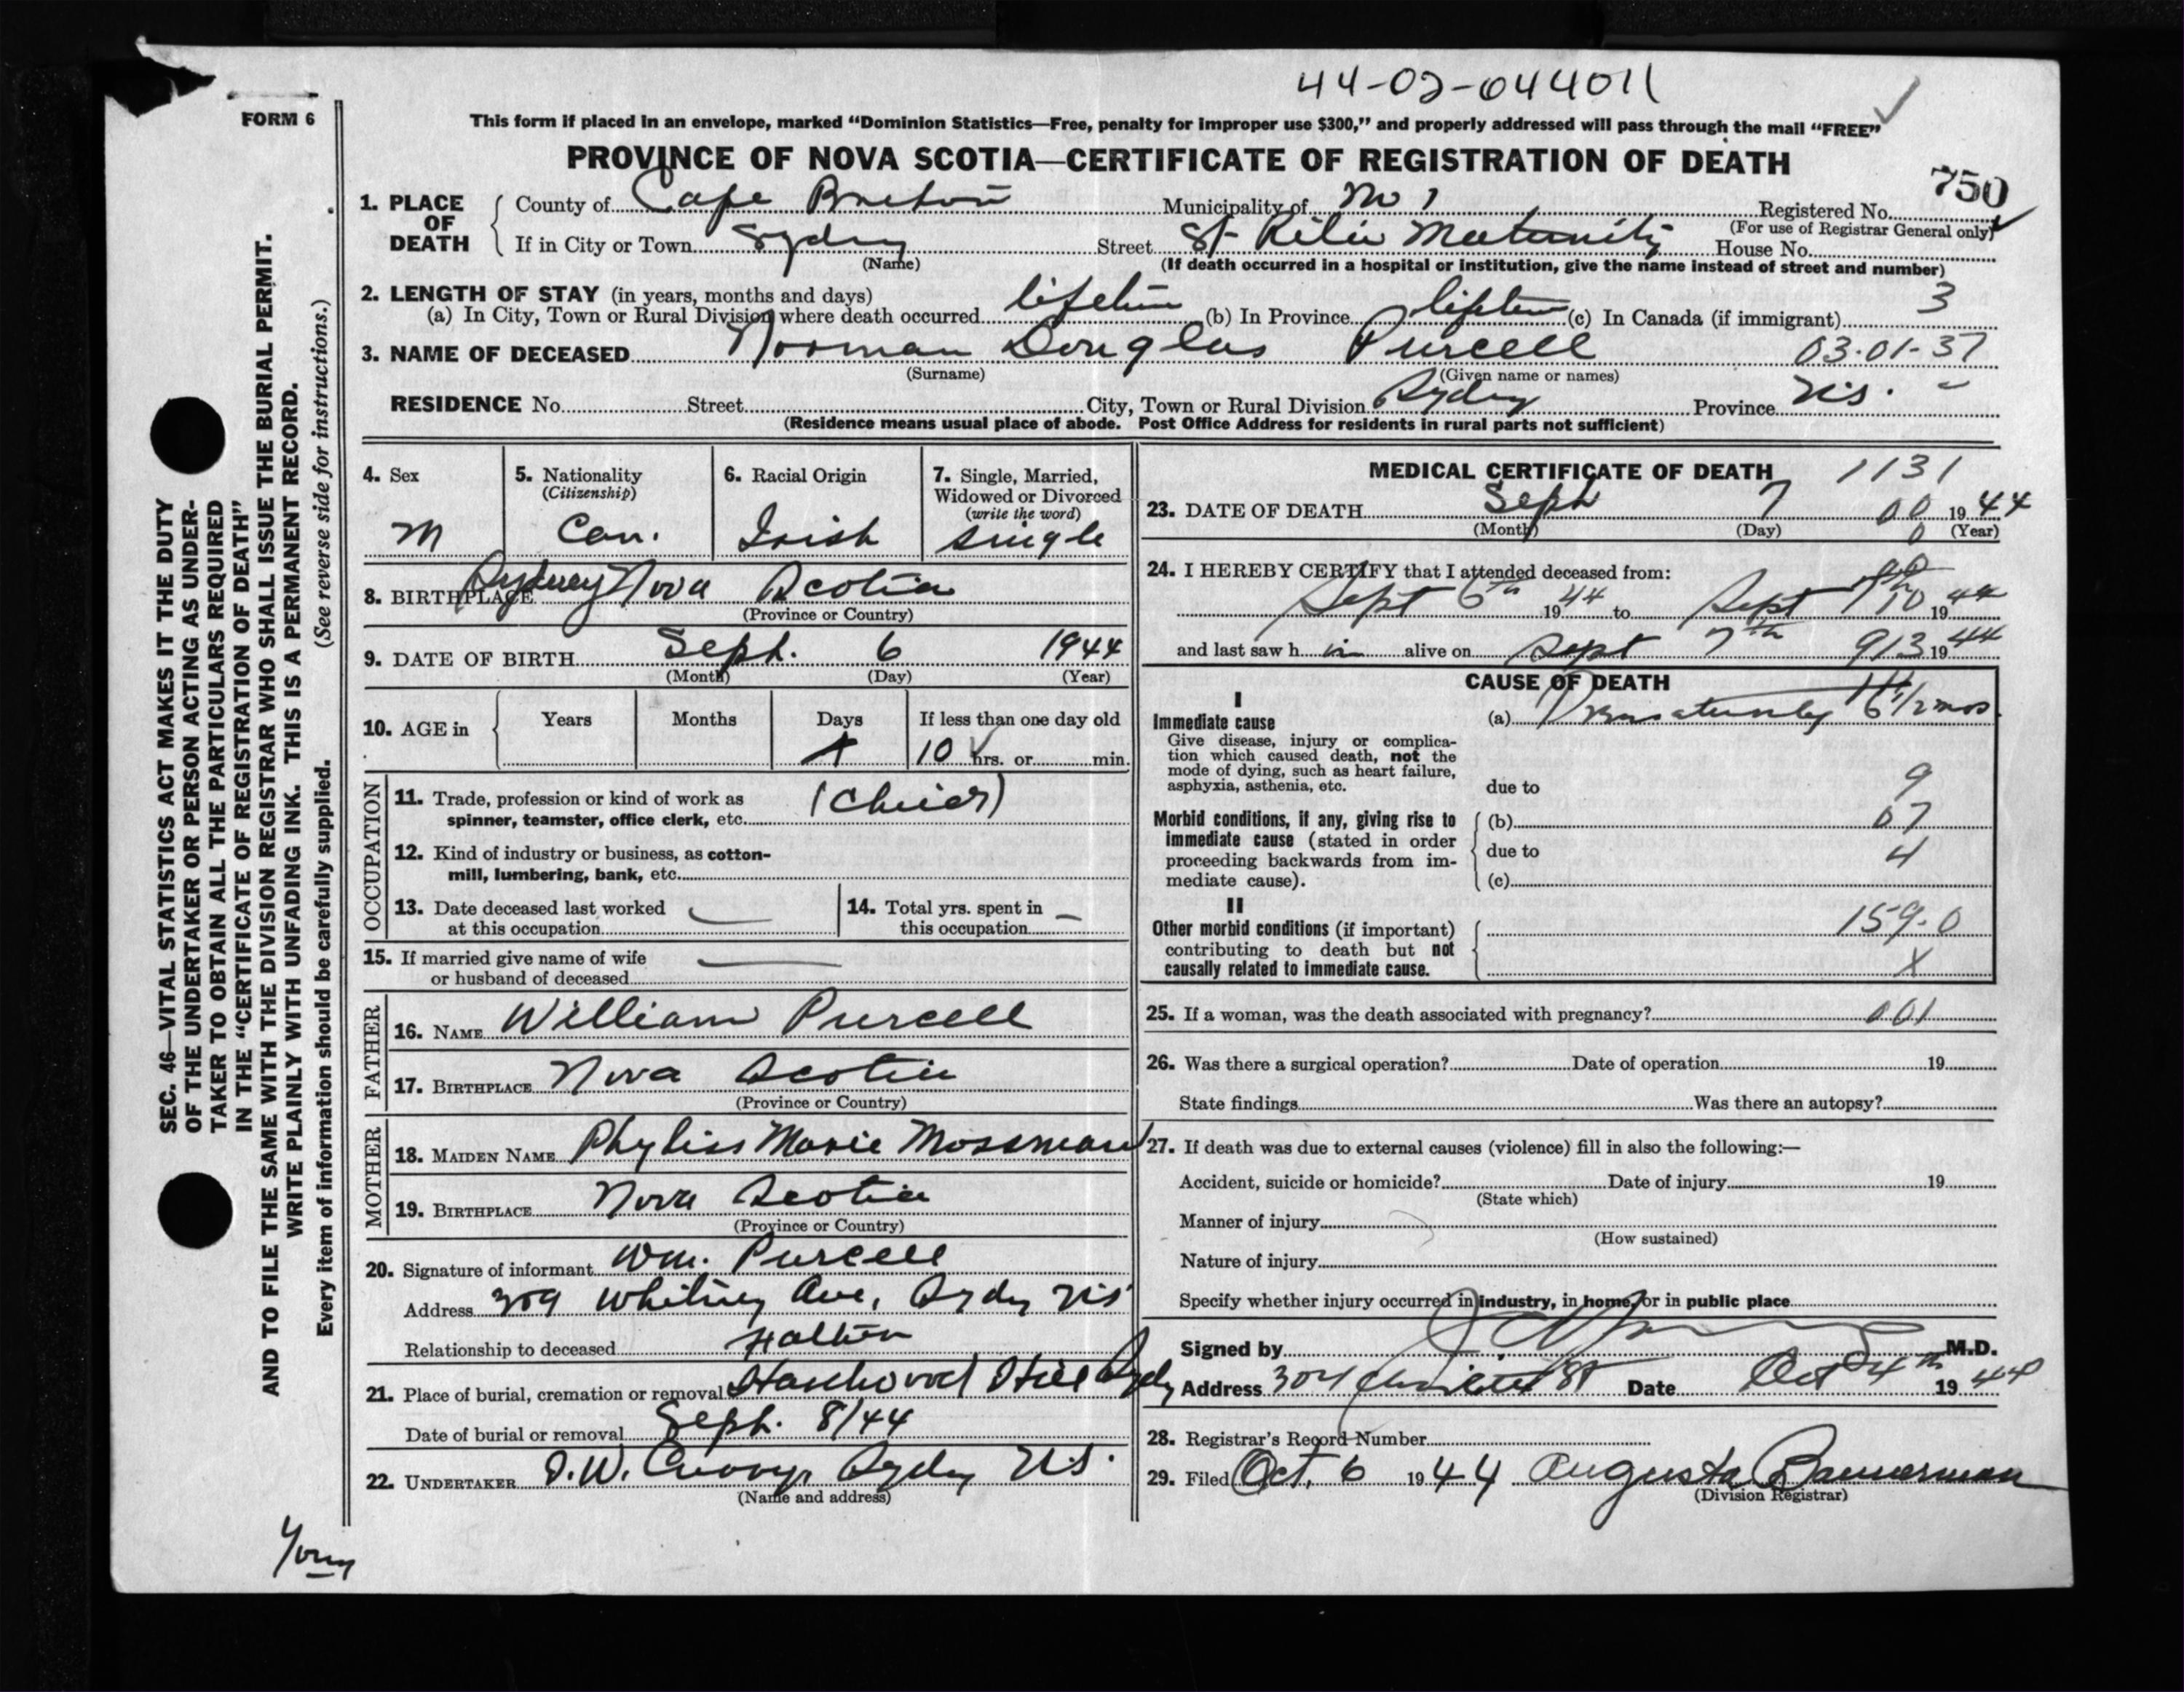 44-02-044011
FORM 6
This form if placed in an envelope, marked “Dominion Statistics—Free, penalty for improper use $300,” and properly addressed will pass through the mail “FREE”
PROVINCE OF NOVA SCOTIA—CERTIFICATE OF REGISTRATION OF DEATH
750
1. PLACE OF DEATH
County of Cape Breton Municipality of No 1 Registered No.
(For use of Registrar General only)
If in City or Town Sydney Street St Rita Maternity House No.
(Name)
(If death occurred in a hospital or institution, give the name instead of street and number)
2. LENGTH OF STAY (in years, months and days)
(a) In City, Town or Rural Division where death occurred lifetim (b) In Province lifetim (c) In Canada (if immigrant) 3
3. NAME OF DECEASED Norman Douglas Purcell 03-01-37
(Surname) (Given name or names)
RESIDENCE No. Street City, Town or Rural Division Sydney Province N.S.
(Residence means usual place of abode. Post Office Address for residents in rural parts not sufficient)
4. Sex
M
5. Nationality
(Citizenship)
Can.
6. Racial Origin
Irish
7. Single, Married,
Widowed or Divorced
(write the word)
single
8. BIRTHPLACE Sydney Nova Scotia
(Province or Country)
9. DATE OF BIRTH Sept. 6 1944
(Month) (Day) (Year)
10. AGE in
Years Months Days If less than one day old
10 hrs. or min.
OCCUPATION
11. Trade, profession or kind of work as
spinner, teamster, office clerk, etc.
12. Kind of industry or business, as cotton-
mill, lumbering, bank, etc.
13. Date deceased last worked
at this occupation
14. Total yrs. spent in
this occupation
15. If married give name of wife
or husband of deceased
FATHER
16. NAME William Purcell
17. BIRTHPLACE Nova Scotia
(Province or Country)
MOTHER
18. MAIDEN NAME Phyliss Marie Mossman
19. BIRTHPLACE Nova Scotia
(Province or Country)
20. Signature of informant Wm. Purcell
Address 309 Whitney Ave, Sydney N.S
Relationship to deceased Father
21. Place of burial, cremation or removal Hardwood Hill Sydney
Date of burial or removal Sept. 8/44
22. UNDERTAKER Sydney N.S.
(Name and address)
MEDICAL CERTIFICATE OF DEATH 1131
23. DATE OF DEATH Sept 7 00 19 44
(Month) (Day) 0 (Year)
24. I HEREBY CERTIFY that I attended deceased from:
Sept 6th 19 44 to Sept 19 44
and last saw h im alive on Sept 7th 913 19 44
CAUSE OF DEATH
I
Immediate cause
Give disease, injury or complica-
tion which caused death, not the
mode of dying, such as heart failure,
asphyxia, asthenia, etc.
(a) Prematurity 6 1/2 mos.
due to 9
Morbid conditions, if any, giving rise to
immediate cause (stated in order
proceeding backwards from im-
mediate cause).
(b) 07
due to 4
(c)
II
Other morbid conditions (if important)
contributing to death but not
causally related to immediate cause.
159-0
X
25. If a woman, was the death associated with pregnancy? 001
26. Was there a surgical operation? Date of operation 19
State findings Was there an autopsy?
27. If death was due to external causes (violence) fill in also the following:—
Accident, suicide or homicide? Date of injury 19
(State which)
Manner of injury
(How sustained)
Nature of injury
Specify whether injury occurred in industry, in home, or in public place
Signed by M.D.
Address 304 St Date Oct 4th 19 44
28. Registrar's Record Number
29. Filed Oct. 6 1944 Augusta Bannerman
(Division Registrar)
SEC. 46—VITAL STATISTICS ACT MAKES IT THE DUTY
OF THE UNDERTAKER OR PERSON ACTING AS UNDER-
TAKER TO OBTAIN ALL THE PARTICULARS REQUIRED
IN THE “CERTIFICATE OF REGISTRATION OF DEATH”
AND TO FILE THE SAME WITH THE DIVISION REGISTRAR WHO SHALL ISSUE THE BURIAL PERMIT.
WRITE PLAINLY WITH UNFADING INK. THIS IS A PERMANENT RECORD.
Every item of information should be carefully supplied. (See reverse side for instructions.)